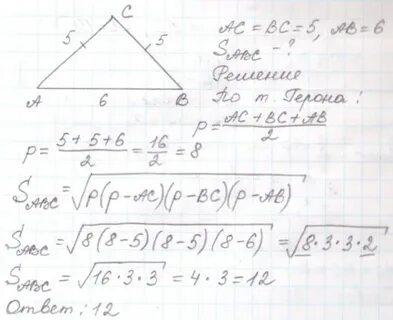 C
AC = BC = 5, AB = 6
5 5
S_ABC - ?
Решение
A 6 B
По т. Герона:
p = (AC + BC + AB)/2
p = (5 + 5 + 6)/2 = 16/2 = 8
S_ABC = √(p(p - AC)(p - BC)(p - AB))
S_ABC = √(8(8-5)(8-5)(8-6)) = √(8·3·3·2)
S_ABC = √(16·3·3) = 4·3 = 12
Ответ: 12